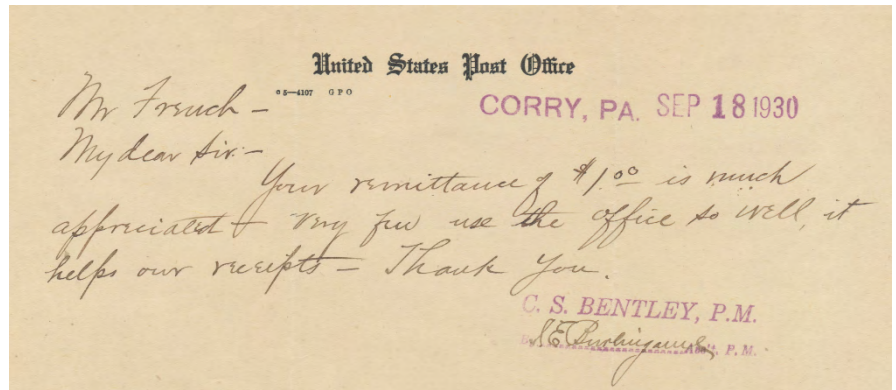 United States Post Office
c5—4107 GPO
CORRY, PA. SEP 18 1930
Mr French —
My dear Sir:—
Your remittance of $1.00 is much
appreciated — Very few use the office so well, it
helps our receipts — Thank you.
C. S. BENTLEY, P.M.
By S E Burlingame Ass't. P. M.